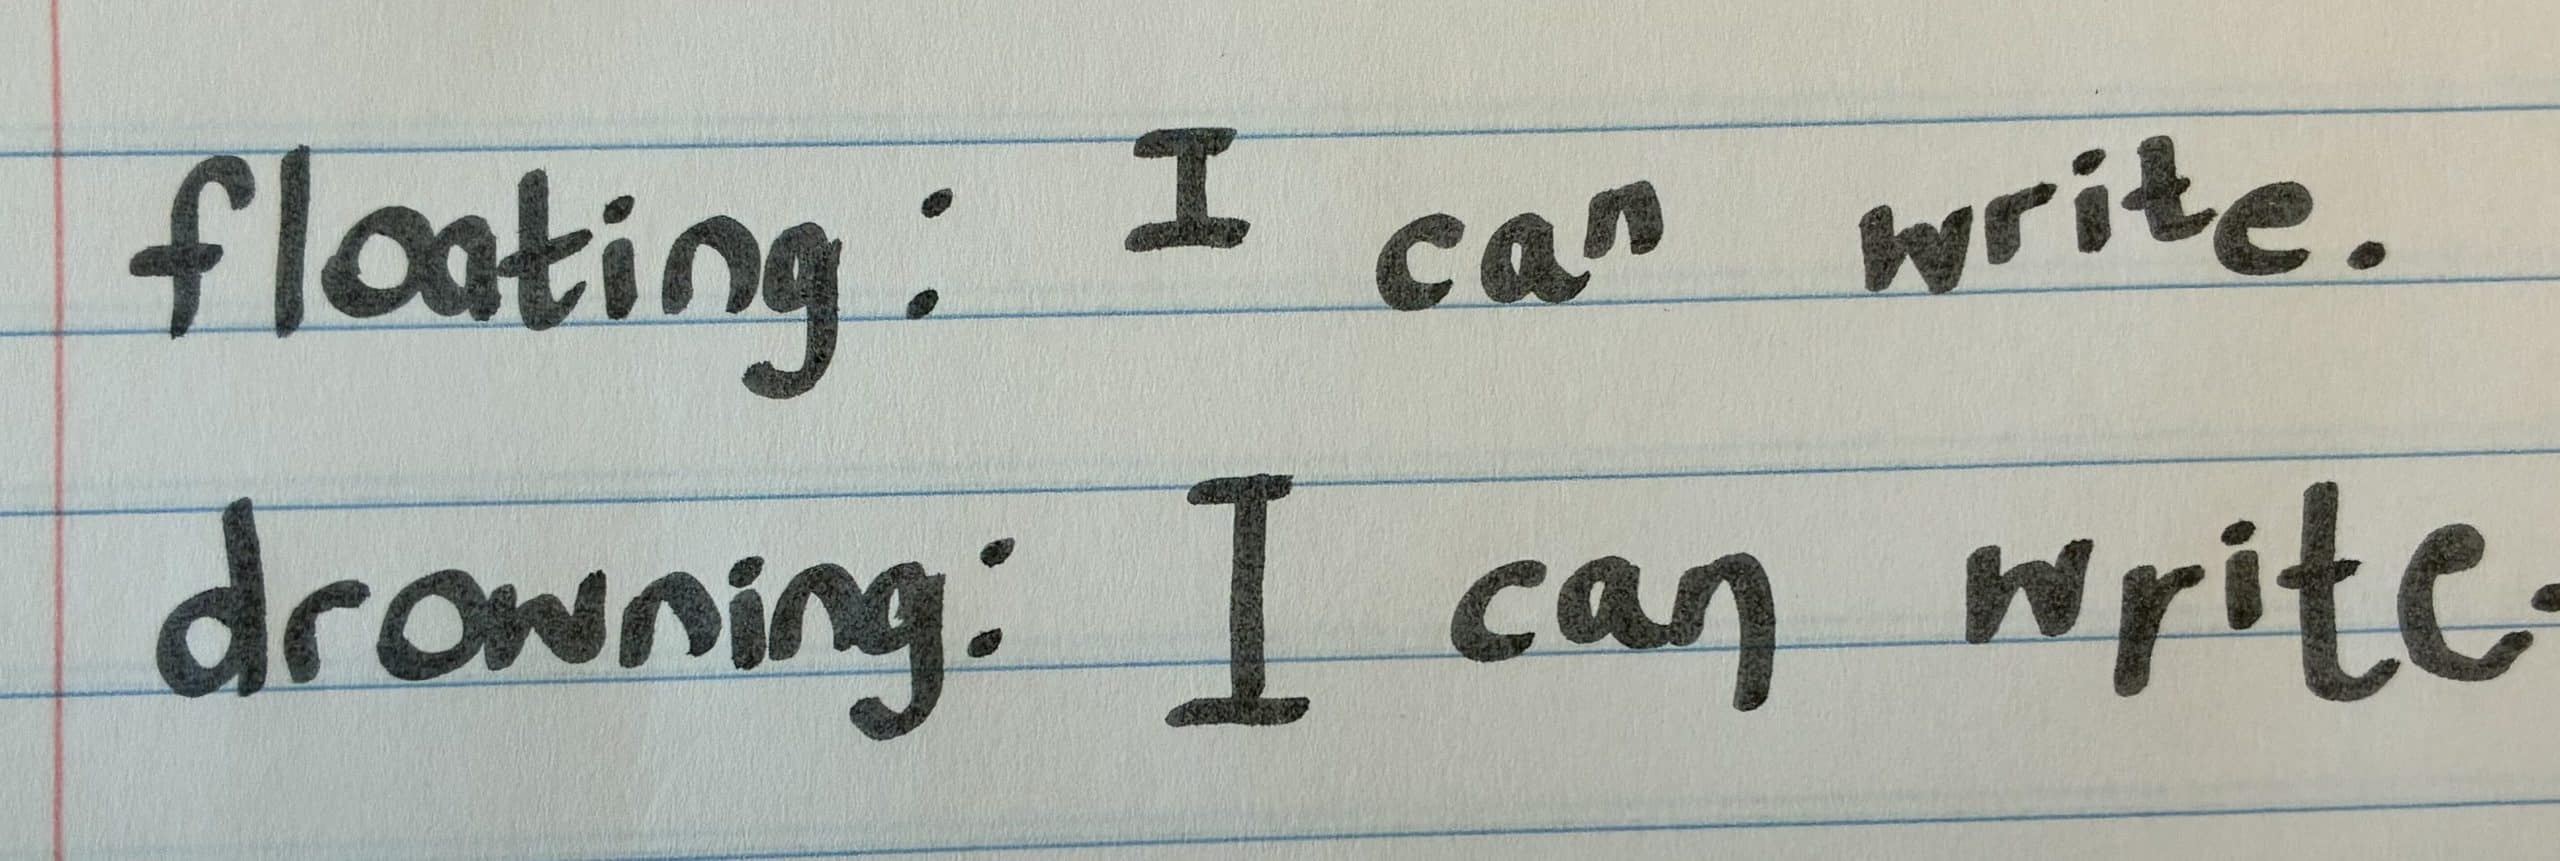 floating: I can write.
drowning: I can write.